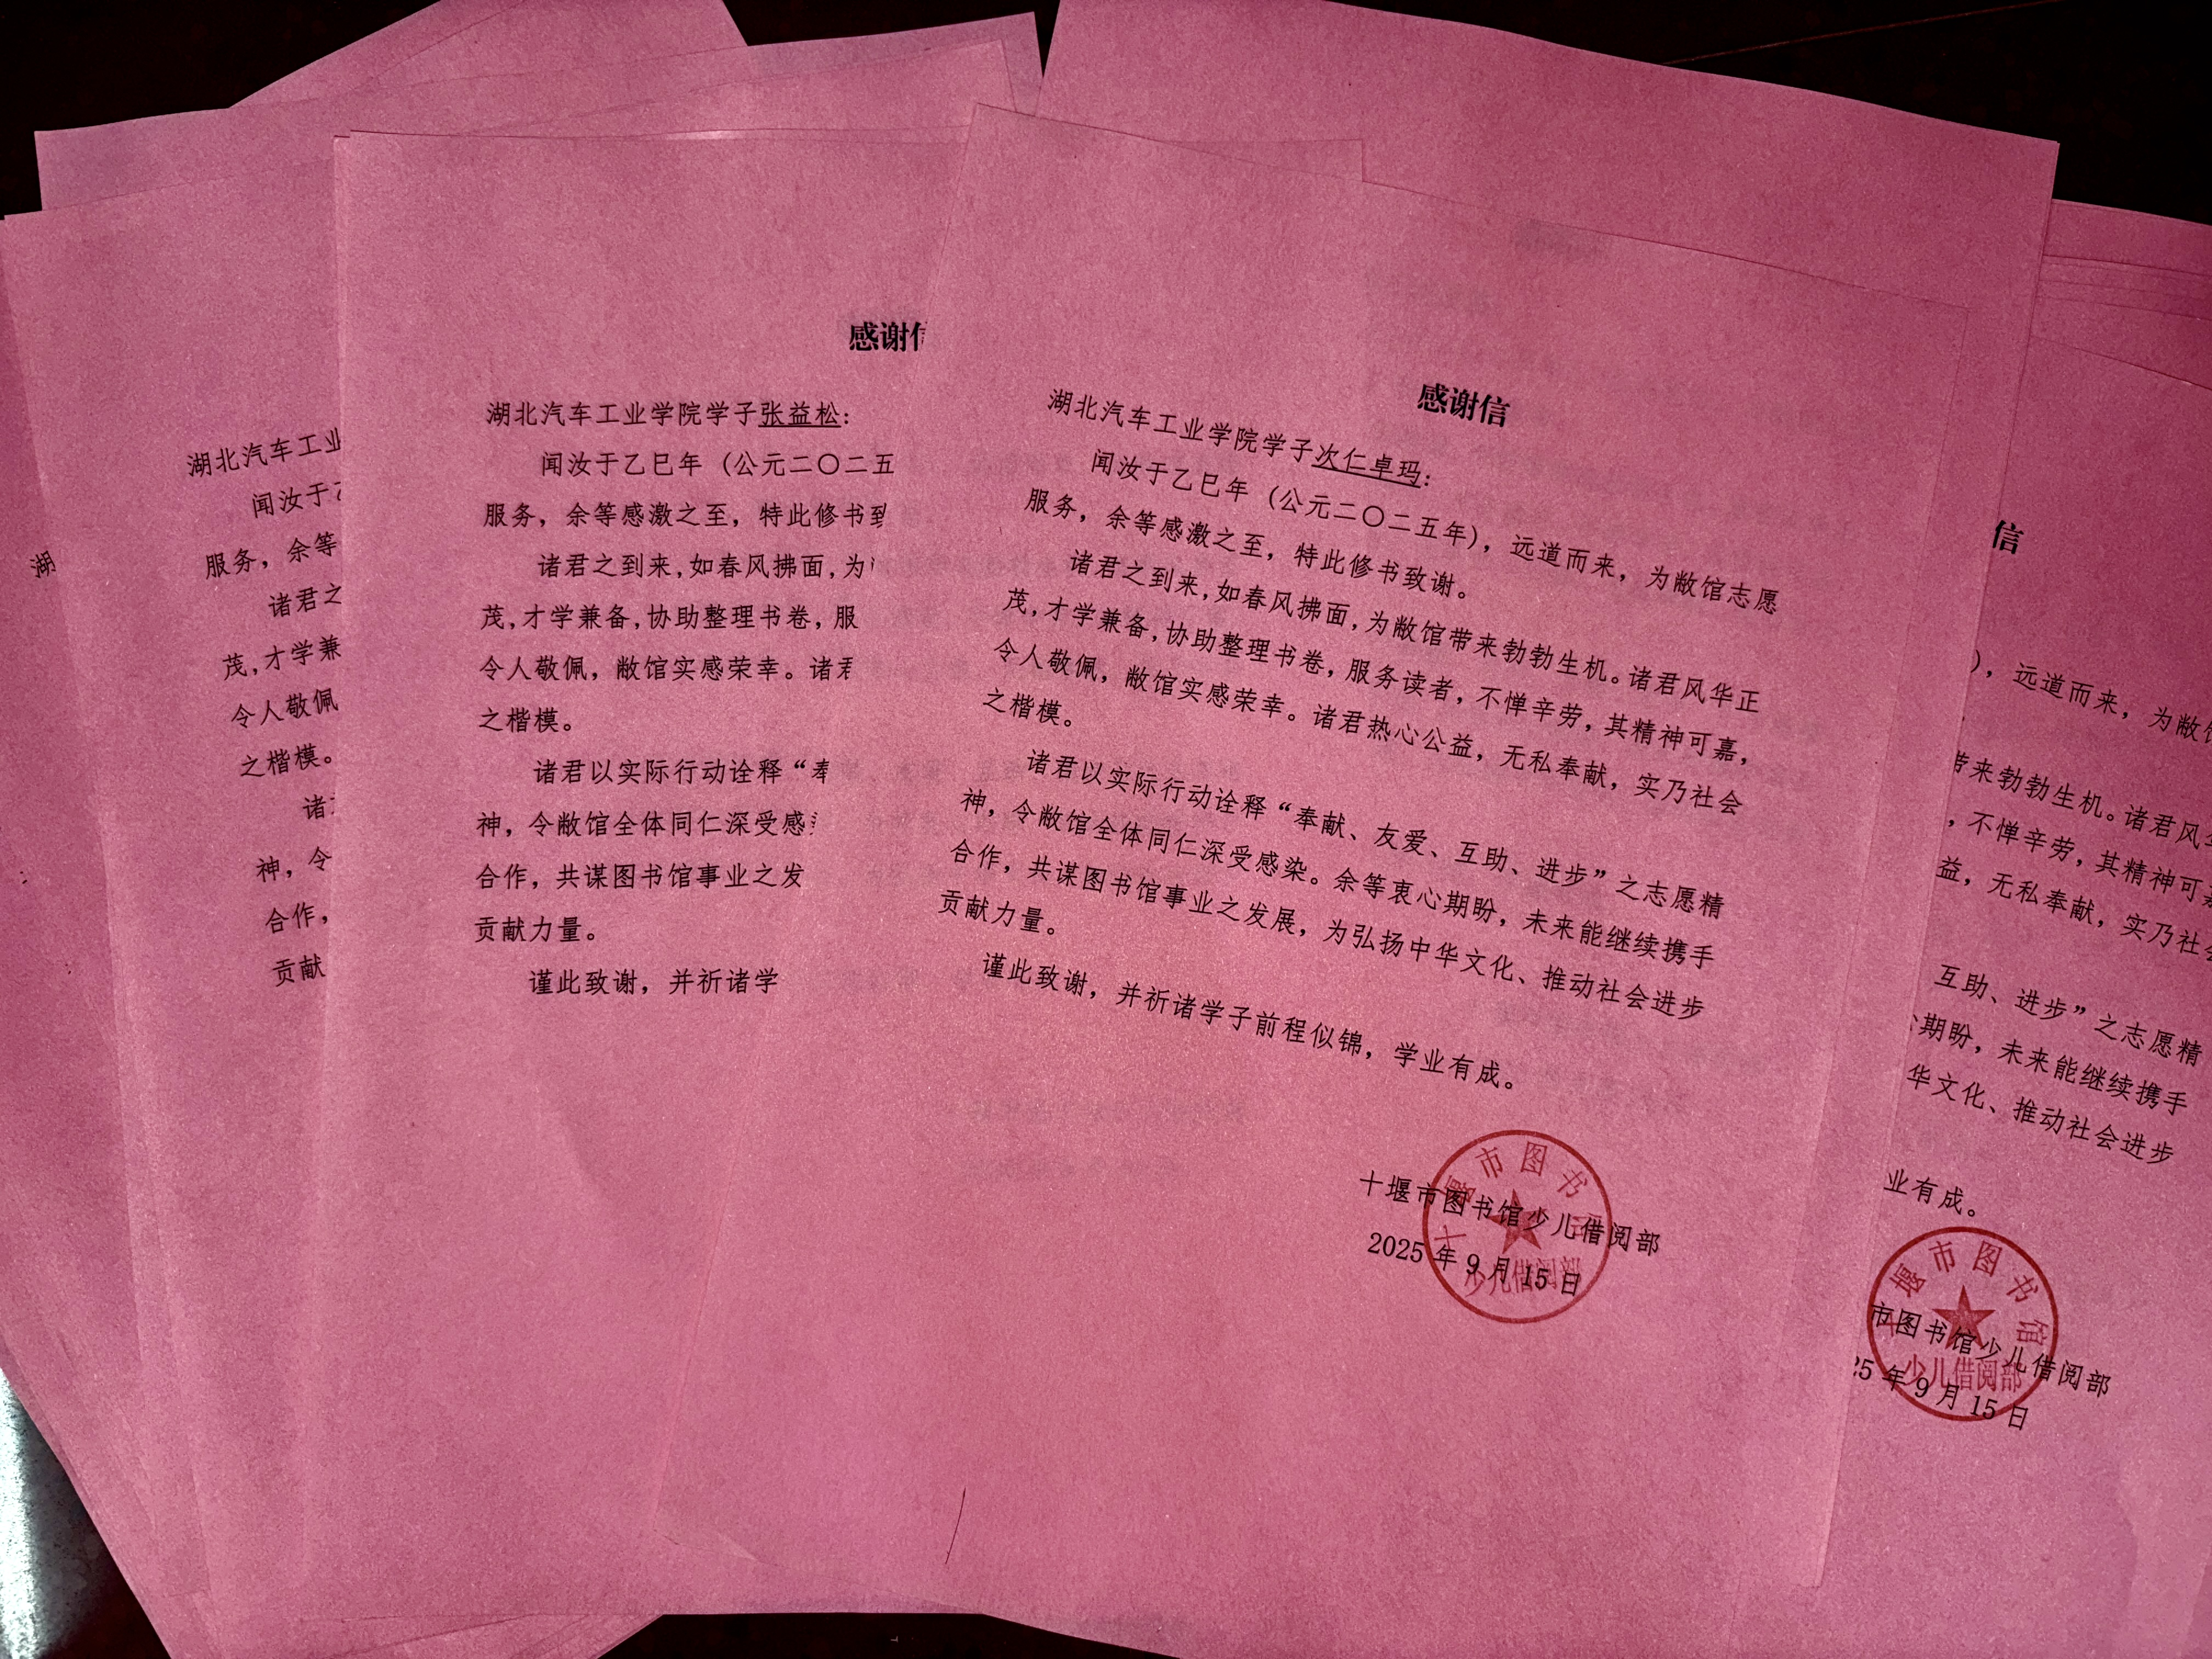 湖
湖北汽车工业
闻汝于
服务，余等
诸君之
茂,才学兼
令人敬佩
之楷模。
诸
神，令
合作，
贡献
感谢
湖北汽车工业学院学子张益松：
闻汝于乙巳年（公元二〇二五
服务，余等感激之至，特此修书
诸君之到来,如春风拂面,为
茂,才学兼备,协助整理书卷，服
令人敬佩，敝馆实感荣幸。诸
之楷模。
诸君以实际行动诠释“奉
神，令敝馆全体同仁深受感
合作，共谋图书馆事业之发
贡献力量。
谨此致谢，并祈诸学
感谢信
湖北汽车工业学院学子次仁卓玛：
闻汝于乙巳年（公元二〇二五年），远道而来，为敝馆志愿
服务，余等感激之至，特此修书致谢。
诸君之到来,如春风拂面,为敝馆带来勃勃生机。诸君风华正
茂,才学兼备,协助整理书卷，服务读者，不惮辛劳，其精神可嘉，
令人敬佩，敝馆实感荣幸。诸君热心公益，无私奉献，实乃社会
之楷模。
诸君以实际行动诠释“奉献、友爱、互助、进步”之志愿精
神，令敝馆全体同仁深受感染。余等衷心期盼，未来能继续携手
合作，共谋图书馆事业之发展，为弘扬中华文化、推动社会进步
贡献力量。
谨此致谢，并祈诸学子前程似锦，学业有成。
十堰市图书馆少儿借阅部
2025 年 9 月 15 日
十堰市图书馆
少儿借阅部
信
），远道而来，为敝
带来勃勃生机。诸君风
，不惮辛劳，其精神可
益，无私奉献，实乃社
互助、进步”之志愿精
期盼，未来能继续携手
华文化、推动社会进步
业有成。
市图书馆少儿借阅部
5 年 9 月 15 日
十堰市图书馆
少儿借阅部